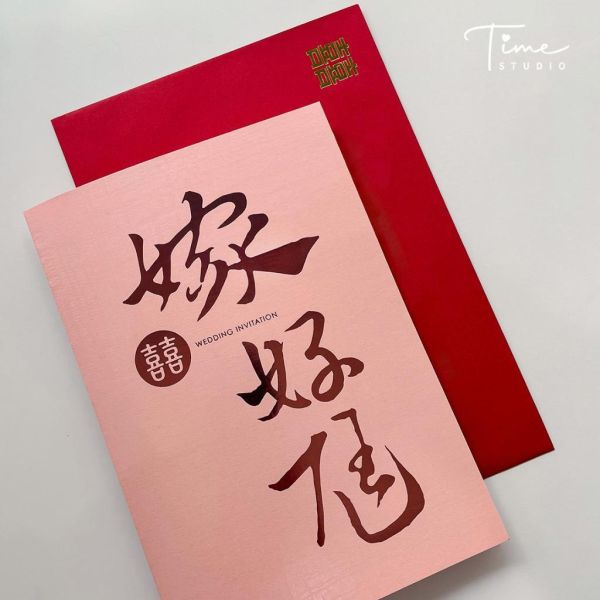 Time
STUDIO
囍
嫁
囍 WEDDING INVITATION
好
尪